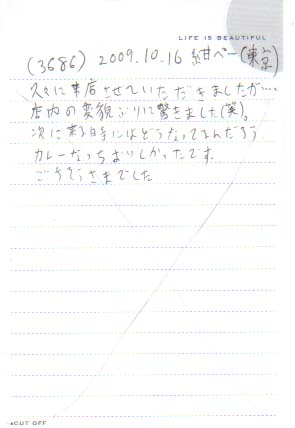 LIFE IS BEAUTIFUL
(3686) 2009.10.16 紺ペー(東京)
久々に来店させていただきましたが…
店内の変貌ぶりに驚きました(笑)。
次に来る時にはどうなってるんだろう
カレーなっちおいしかったです。
ごちそうさまでした
CUT OFF